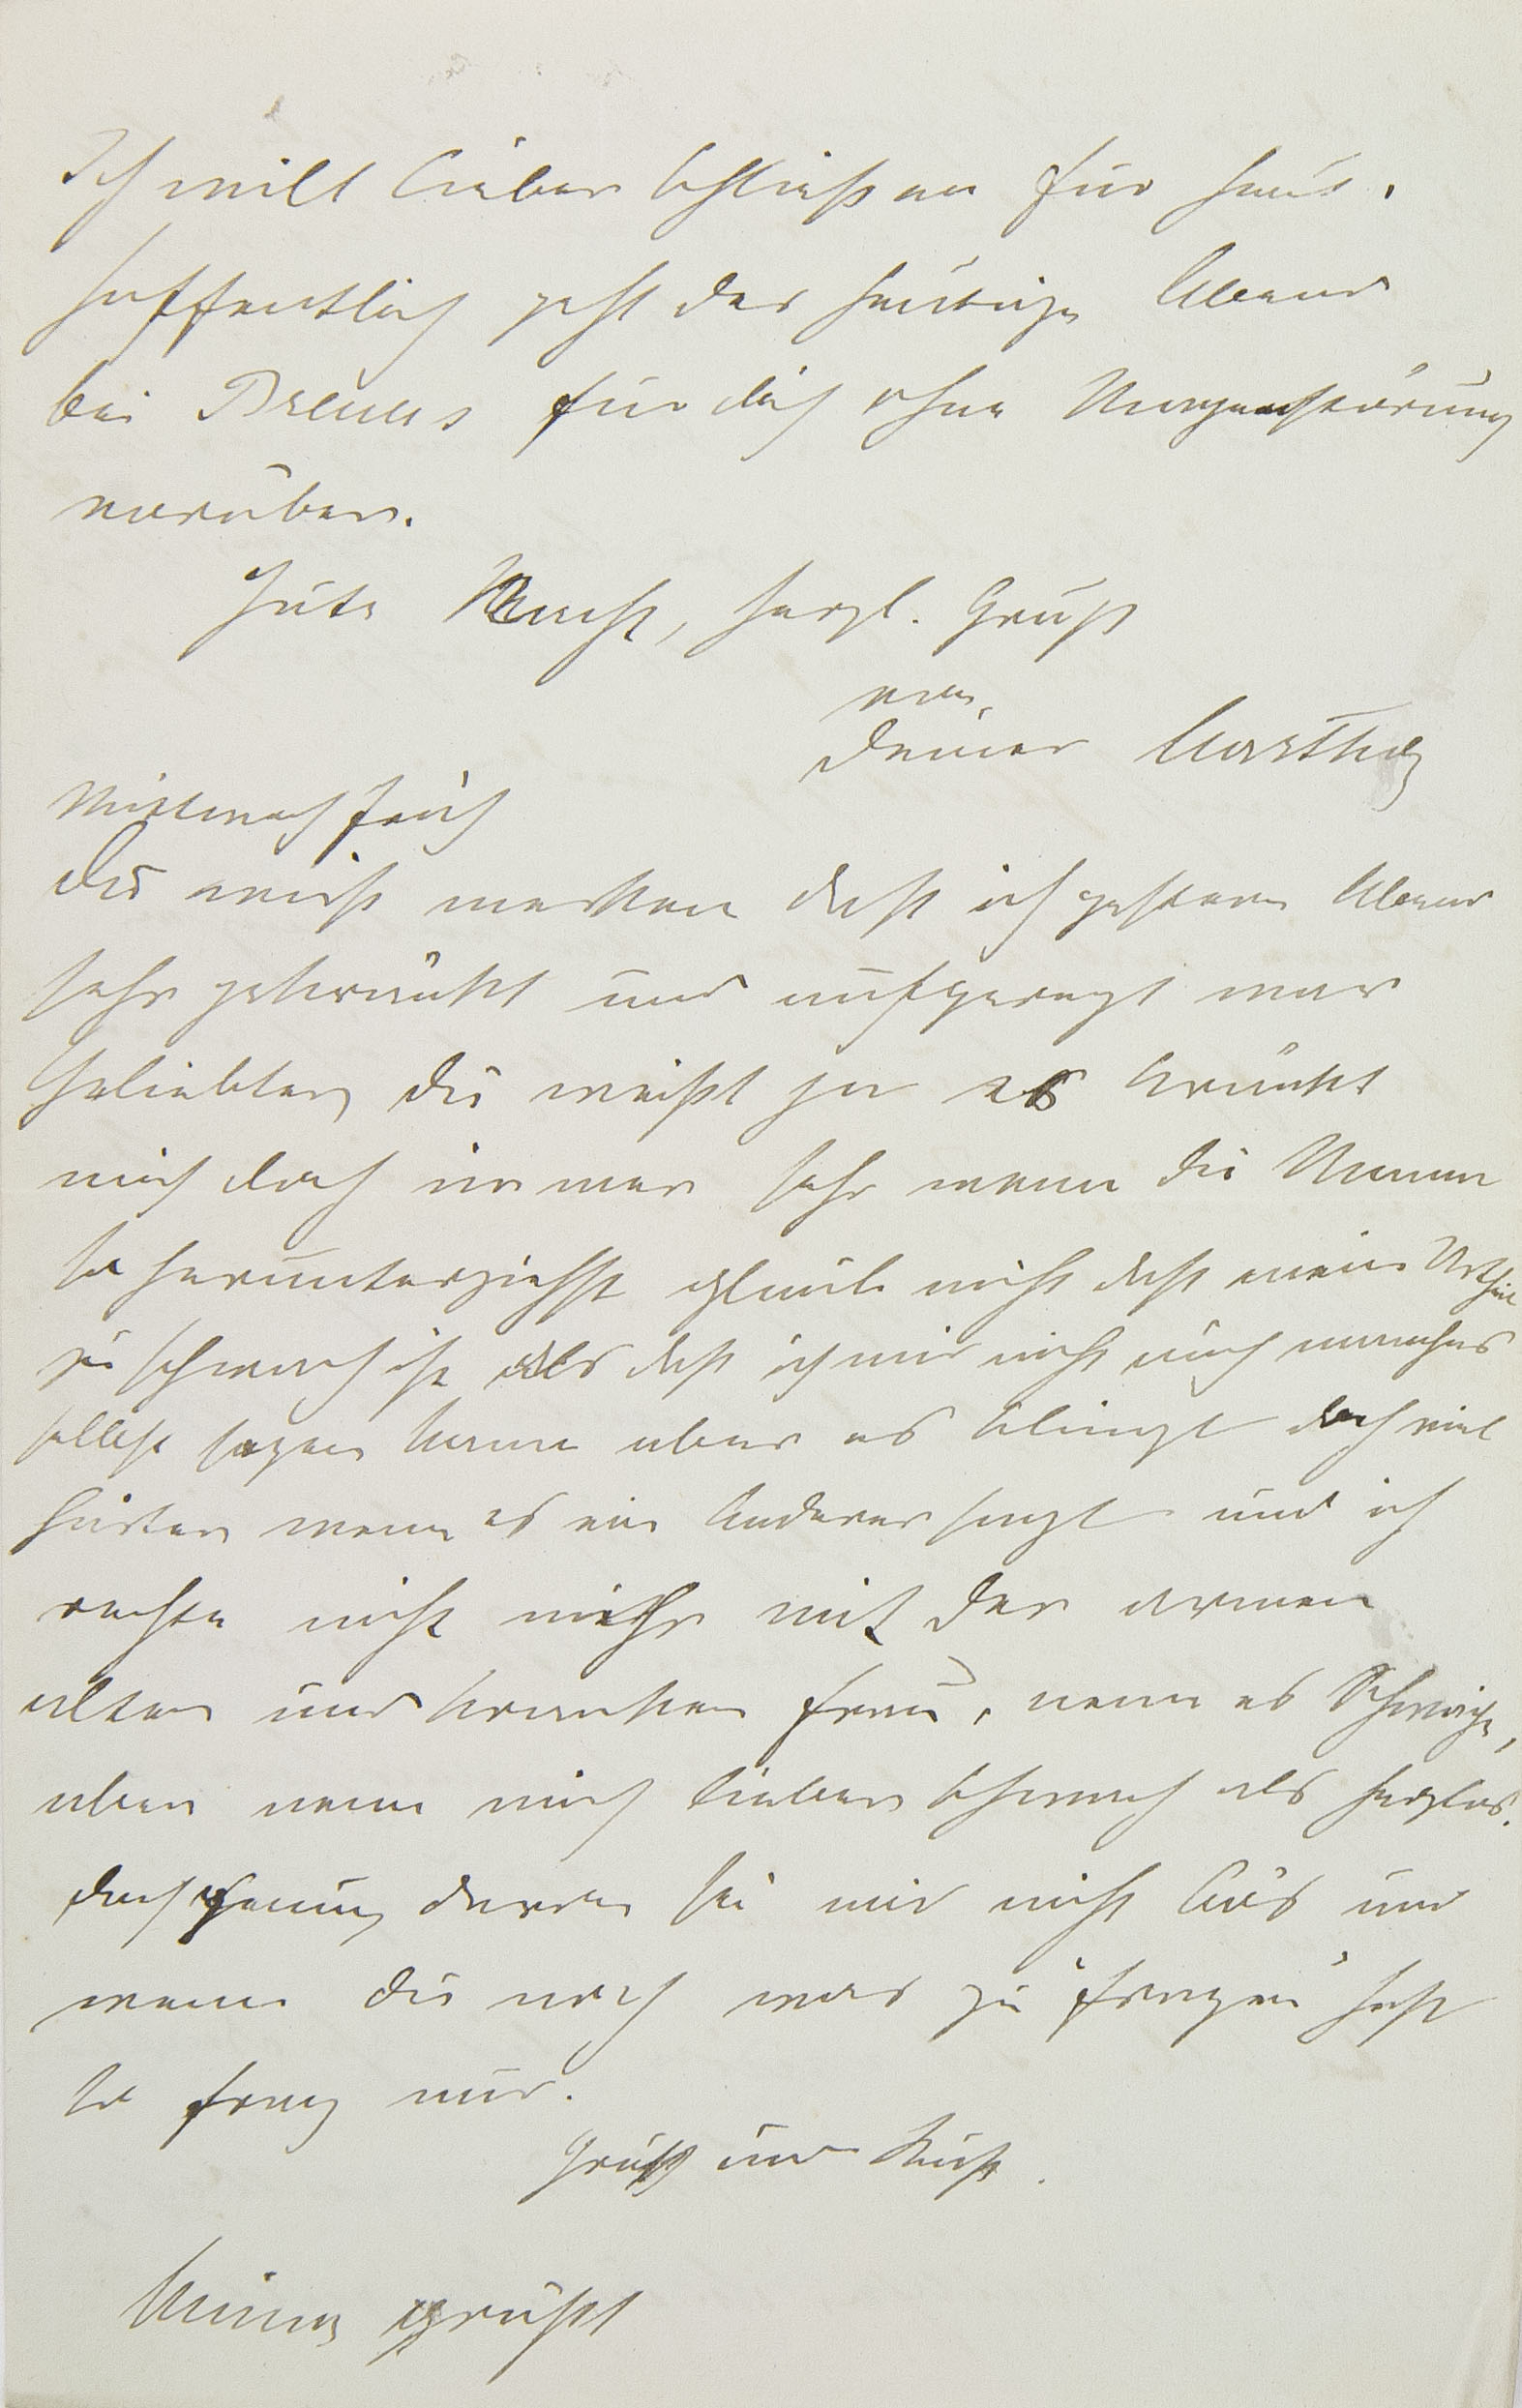 Ich will lieber schließen für heut.
Hoffentlich geht der heutige Abend
bei Breuers für dich ohne Magenstörung
vorüber.
Gute Nacht, herzl. Gruß
von
deiner Martha
Mittwoch früh
Du wirst merken daß ich gestern Abend
sehr gekränkt und aufgeregt war
Geliebter, du weißt ja es kränkt
mich doch immer sehr wenn du Mama
so herunterziehst glaub nicht daß mein Urtheil
zu schwach ist als daß ich mir nicht auch manches
selbst sagen kann aber es klingt doch viel
härter wenn es ein Anderer sagt und ich
rechte nicht mehr mit der armen
alten und kranken Frau, nenn es Schwäche,
aber nenn mich lieber schwach als herzlos.
doch genug davon sei mir nicht bös und
wenn du noch was zu "fragen" hast
so frag nur.
Gruß und Kuß.
Minna grüßt